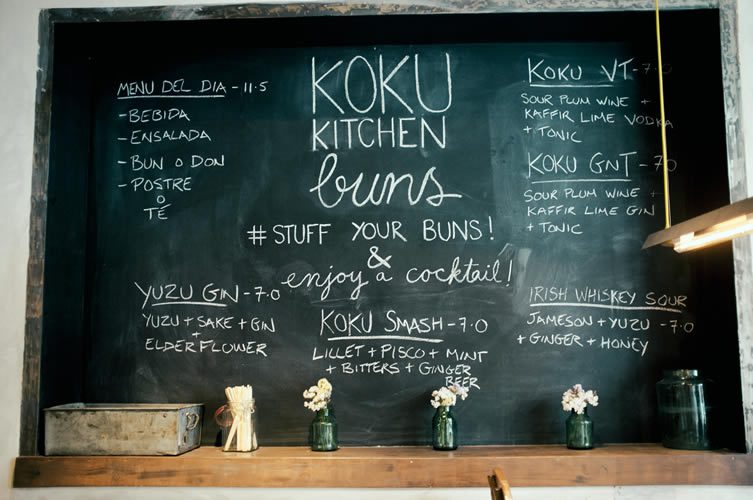 MENU DEL DIA - 11.5
- BEBIDA
- ENSALADA
- BUN O DON
- POSTRE
O
TÉ
KOKU
KITCHEN
buns
# STUFF YOUR BUNS!
&
enjoy a cocktail!
KOKU VT - 7.0
SOUR PLUM WINE +
KAFFIR LIME VODKA
+ TONIC
KOKU GNT - 7.0
SOUR PLUM WINE +
KAFFIR LIME GIN
+ TONIC
YUZU GIN - 7.0
YUZU + SAKE + GIN
+
ELDERFLOWER
KOKU SMASH - 7.0
LILLET + PISCO + MINT
+ BITTERS + GINGER
BEER
IRISH WHISKEY SOUR
JAMESON + YUZU - 7.0
+ GINGER + HONEY